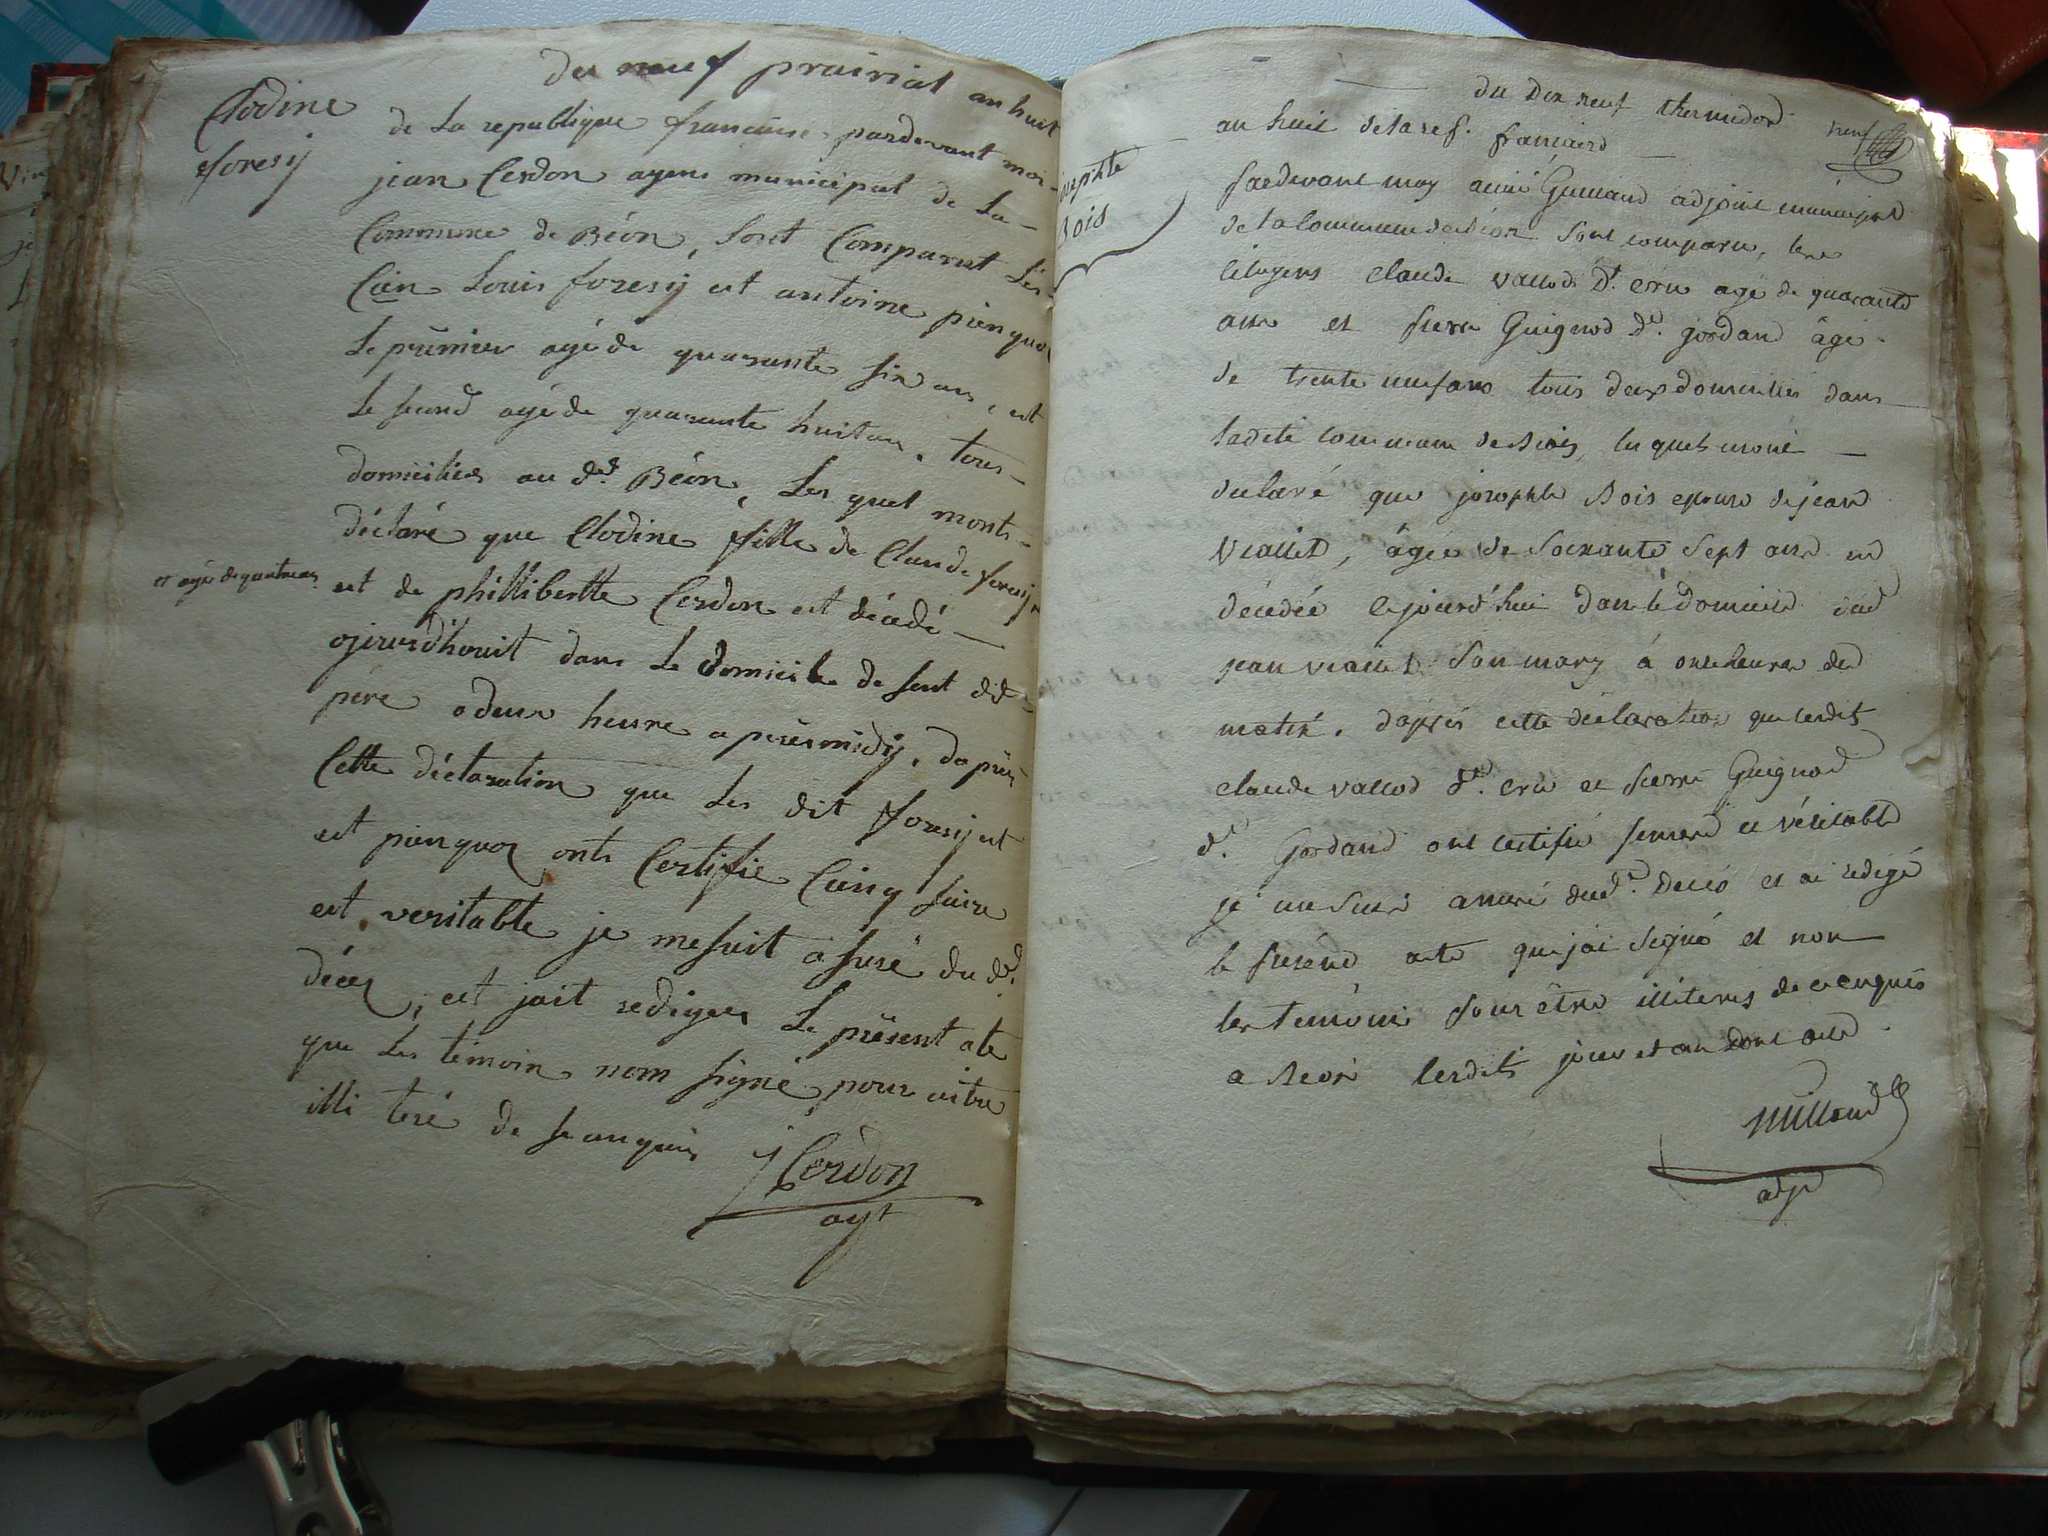 Clodine
foresÿ
du neuf prairial an huit
de La republique francaise, pardevant moi
jean Cerdon agent municipal de La
Commune de Béon, Sont Comparut Les
Cien Louis foresÿ est antoine pienquoz
Le prümier agé de quarante six ans, est
Le second agé de quarante huit an, tous
domiciliés au dt. Béon, Les quel monts
déclaré que Clodine fille de Claude foresÿ
et agé de quatre an
est de phillibertte Cerdon est décedé
ojourdhouit dans Le Domicile de sont dit
pére a deux heure a prèsmidÿ, daprès
Cette déclaration que Les dit foresÿ est
est pienquoz onts Certifie Cüng
est veritable je me suit a suré du dt.
décez, est jait rediger Le présent ate
que Les témoin nom signé pour aitre
illi teré de se anquis
j Cerdon
agt
du Dix neuf thermidor
neuf
an huit de la rep. francaise
josephte
Bois
pardevant moy aimé Guillaud adjoint municipal
de la Commune de Béon sont comparu, les
Citoyens Claude Vallod dt. Cru agé de quarante
ans et pierre Guignod dt. jordan âgé
de trente neuf ans tous deux domiciliés dans
ladite commune de Béon, les quels mont
declaré que josephte Bois epouse de jean
Viallet, âgée de Soixante Sept ans est
décedée ejourd'hui dans le domicile dud
jean viallet son mary à onze heures de
matin. d'après cette déclaration que lesdits
claude vallod dt. Cru et pierre Guignod
dt. jordan ont certifié sincere et véritable
je me suis assuré dudt. Décès et ai redigé
le présent acte que j'ai signé et non
les temoins pour être illiteres de ce enquis
a Beon lesdits jour et an dont acte
adjt